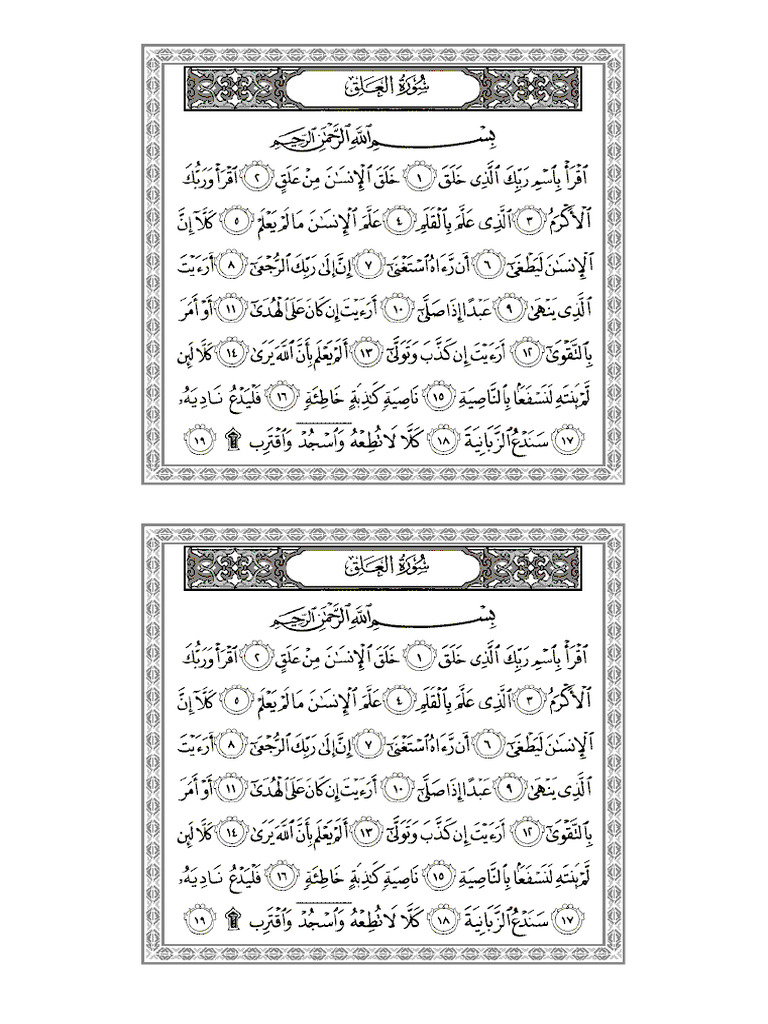 سُورَةُ العَلَقِ
بِسْمِ ٱللَّهِ ٱلرَّحْمَٰنِ ٱلرَّحِيمِ
ٱقْرَأْ بِٱسْمِ رَبِّكَ ٱلَّذِى خَلَقَ ١ خَلَقَ ٱلْإِنسَٰنَ مِنْ عَلَقٍ ٢ ٱقْرَأْ وَرَبُّكَ
ٱلْأَكْرَمُ ٣ ٱلَّذِى عَلَّمَ بِٱلْقَلَمِ ٤ عَلَّمَ ٱلْإِنسَٰنَ مَا لَمْ يَعْلَمْ ٥ كَلَّآ إِنَّ
ٱلْإِنسَٰنَ لَيَطْغَىٰٓ ٦ أَن رَّءَاهُ ٱسْتَغْنَىٰٓ ٧ إِنَّ إِلَىٰ رَبِّكَ ٱلرُّجْعَىٰٓ ٨ أَرَءَيْتَ
ٱلَّذِى يَنْهَىٰ ٩ عَبْدًا إِذَا صَلَّىٰٓ ١٠ أَرَءَيْتَ إِن كَانَ عَلَى ٱلْهُدَىٰٓ ١١ أَوْ أَمَرَ
بِٱلتَّقْوَىٰٓ ١٢ أَرَءَيْتَ إِن كَذَّبَ وَتَوَلَّىٰٓ ١٣ أَلَمْ يَعْلَم بِأَنَّ ٱللَّهَ يَرَىٰ ١٤ كَلَّا لَئِن
لَّمْ يَنتَهِ لَنَسْفَعًۢا بِٱلنَّاصِيَةِ ١٥ نَاصِيَةٍ كَٰذِبَةٍ خَاطِئَةٍ ١٦ فَلْيَدْعُ نَادِيَهُۥ
١٧ سَنَدْعُ ٱلزَّبَانِيَةَ ١٨ كَلَّا لَا تُطِعْهُ وَٱسْجُدْ وَٱقْتَرِب ۩ ١٩
سُورَةُ العَلَقِ
بِسْمِ ٱللَّهِ ٱلرَّحْمَٰنِ ٱلرَّحِيمِ
ٱقْرَأْ بِٱسْمِ رَبِّكَ ٱلَّذِى خَلَقَ ١ خَلَقَ ٱلْإِنسَٰنَ مِنْ عَلَقٍ ٢ ٱقْرَأْ وَرَبُّكَ
ٱلْأَكْرَمُ ٣ ٱلَّذِى عَلَّمَ بِٱلْقَلَمِ ٤ عَلَّمَ ٱلْإِنسَٰنَ مَا لَمْ يَعْلَمْ ٥ كَلَّآ إِنَّ
ٱلْإِنسَٰنَ لَيَطْغَىٰٓ ٦ أَن رَّءَاهُ ٱسْتَغْنَىٰٓ ٧ إِنَّ إِلَىٰ رَبِّكَ ٱلرُّجْعَىٰٓ ٨ أَرَءَيْتَ
ٱلَّذِى يَنْهَىٰ ٩ عَبْدًا إِذَا صَلَّىٰٓ ١٠ أَرَءَيْتَ إِن كَانَ عَلَى ٱلْهُدَىٰٓ ١١ أَوْ أَمَرَ
بِٱلتَّقْوَىٰٓ ١٢ أَرَءَيْتَ إِن كَذَّبَ وَتَوَلَّىٰٓ ١٣ أَلَمْ يَعْلَم بِأَنَّ ٱللَّهَ يَرَىٰ ١٤ كَلَّا لَئِن
لَّمْ يَنتَهِ لَنَسْفَعًۢا بِٱلنَّاصِيَةِ ١٥ نَاصِيَةٍ كَٰذِبَةٍ خَاطِئَةٍ ١٦ فَلْيَدْعُ نَادِيَهُۥ
١٧ سَنَدْعُ ٱلزَّبَانِيَةَ ١٨ كَلَّا لَا تُطِعْهُ وَٱسْجُدْ وَٱقْتَرِب ۩ ١٩